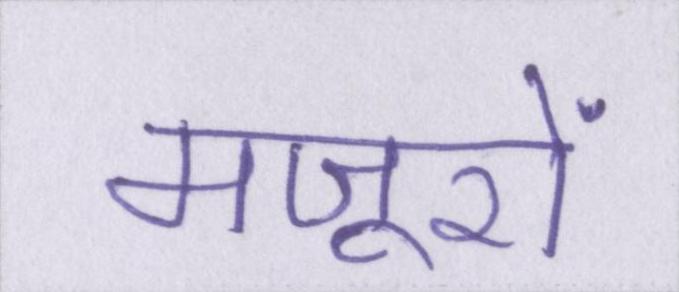 मजूरों